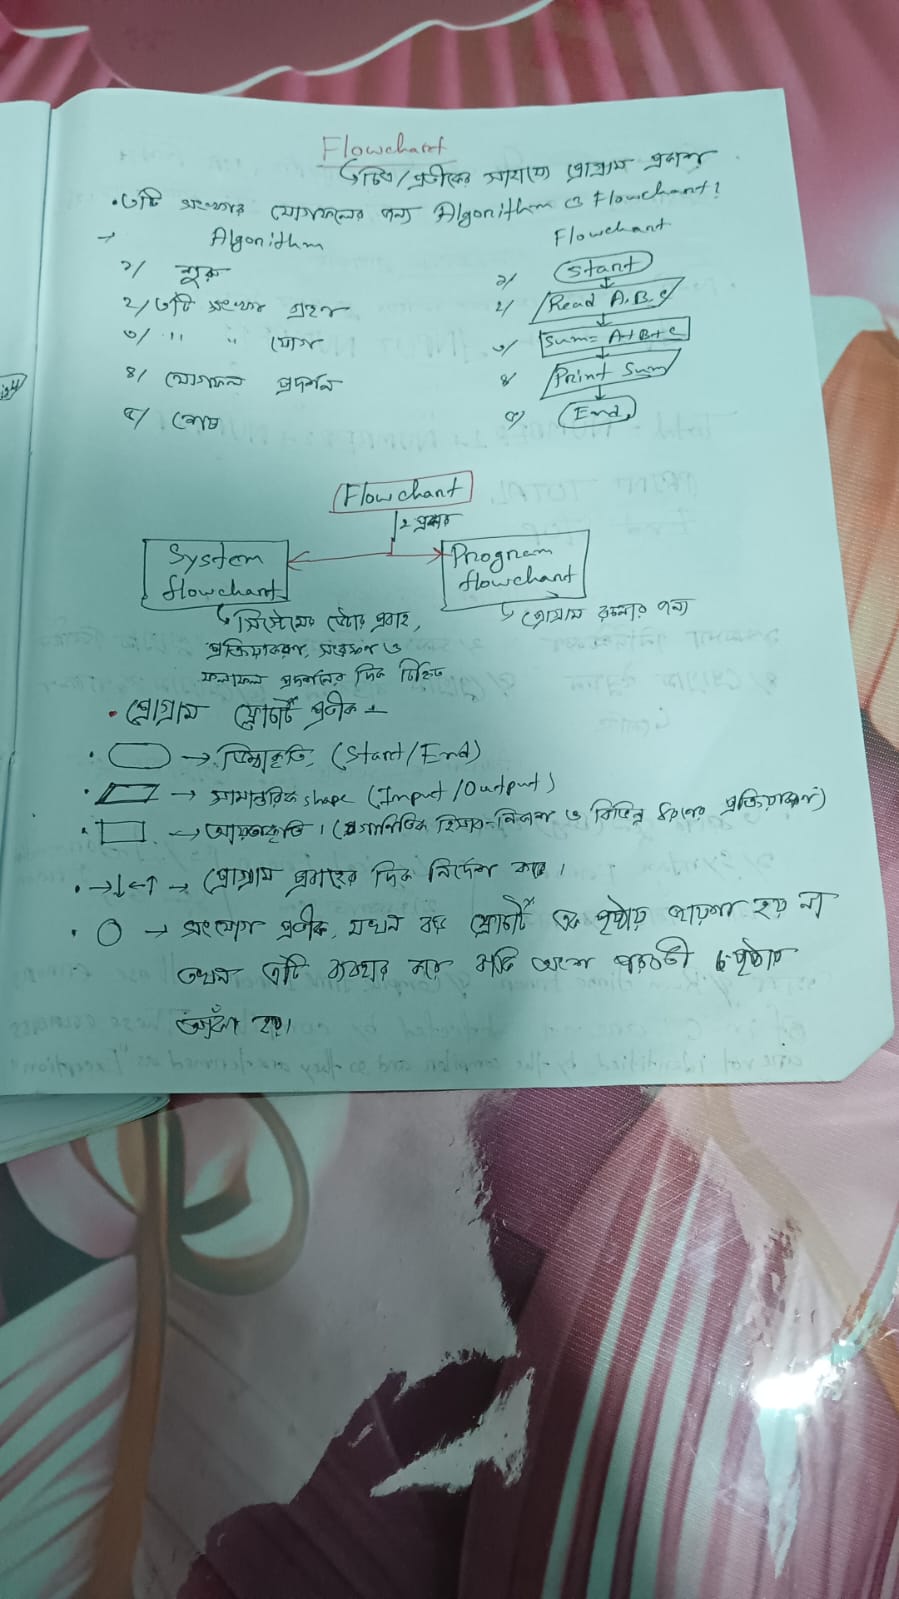 Flowchart
↳ চিত্র/প্রতীকের সাহায্যে প্রোগ্রাম প্রকাশ
• ৩টি সংখ্যার যোগফলের জন্য Algorithm ও Flowchart?
→ Algorithm
Flowchart
১/ শুরু
২/ ৩টি সংখ্যা গ্রহণ
৩/ " " যোগ
৪/ যোগফল প্রদর্শন
৫/ শেষ
১/ Start
২/ Read A,B,C
৩/ Sum= A+B+C
৪/ Print Sum
৫/ End
Flowchart
২ প্রকার
System
flowchart
Program
flowchart
↳ সিস্টেমের ডেটা প্রবাহ,
প্রক্রিয়াকরণ, সংরক্ষণ ও
ফলাফল প্রদর্শনের দিক চিহ্নিত
↳ প্রোগ্রাম রচনার জন্য
• প্রোগ্রাম ফ্লোচার্ট প্রতীক -
• → ডিম্বাকৃতি, (Start/End)
• → সামান্তরিক shape (Input/Output)
• → আয়তাকৃতি। (গাণিতিক হিসাব-নিকাশ ও বিভিন্ন ধরণের প্রক্রিয়াকরণ)
• →↓←↑ → প্রোগ্রাম প্রবাহের দিক নির্দেশ করে।
• → সংযোগ প্রতীক, যখন বড় ফ্লোচার্ট এক পৃষ্ঠায় জায়গা হয় না
তখন এটি ব্যবহার করে বাকি অংশ পরবর্তী পৃষ্ঠায়
আঁকা হয়।